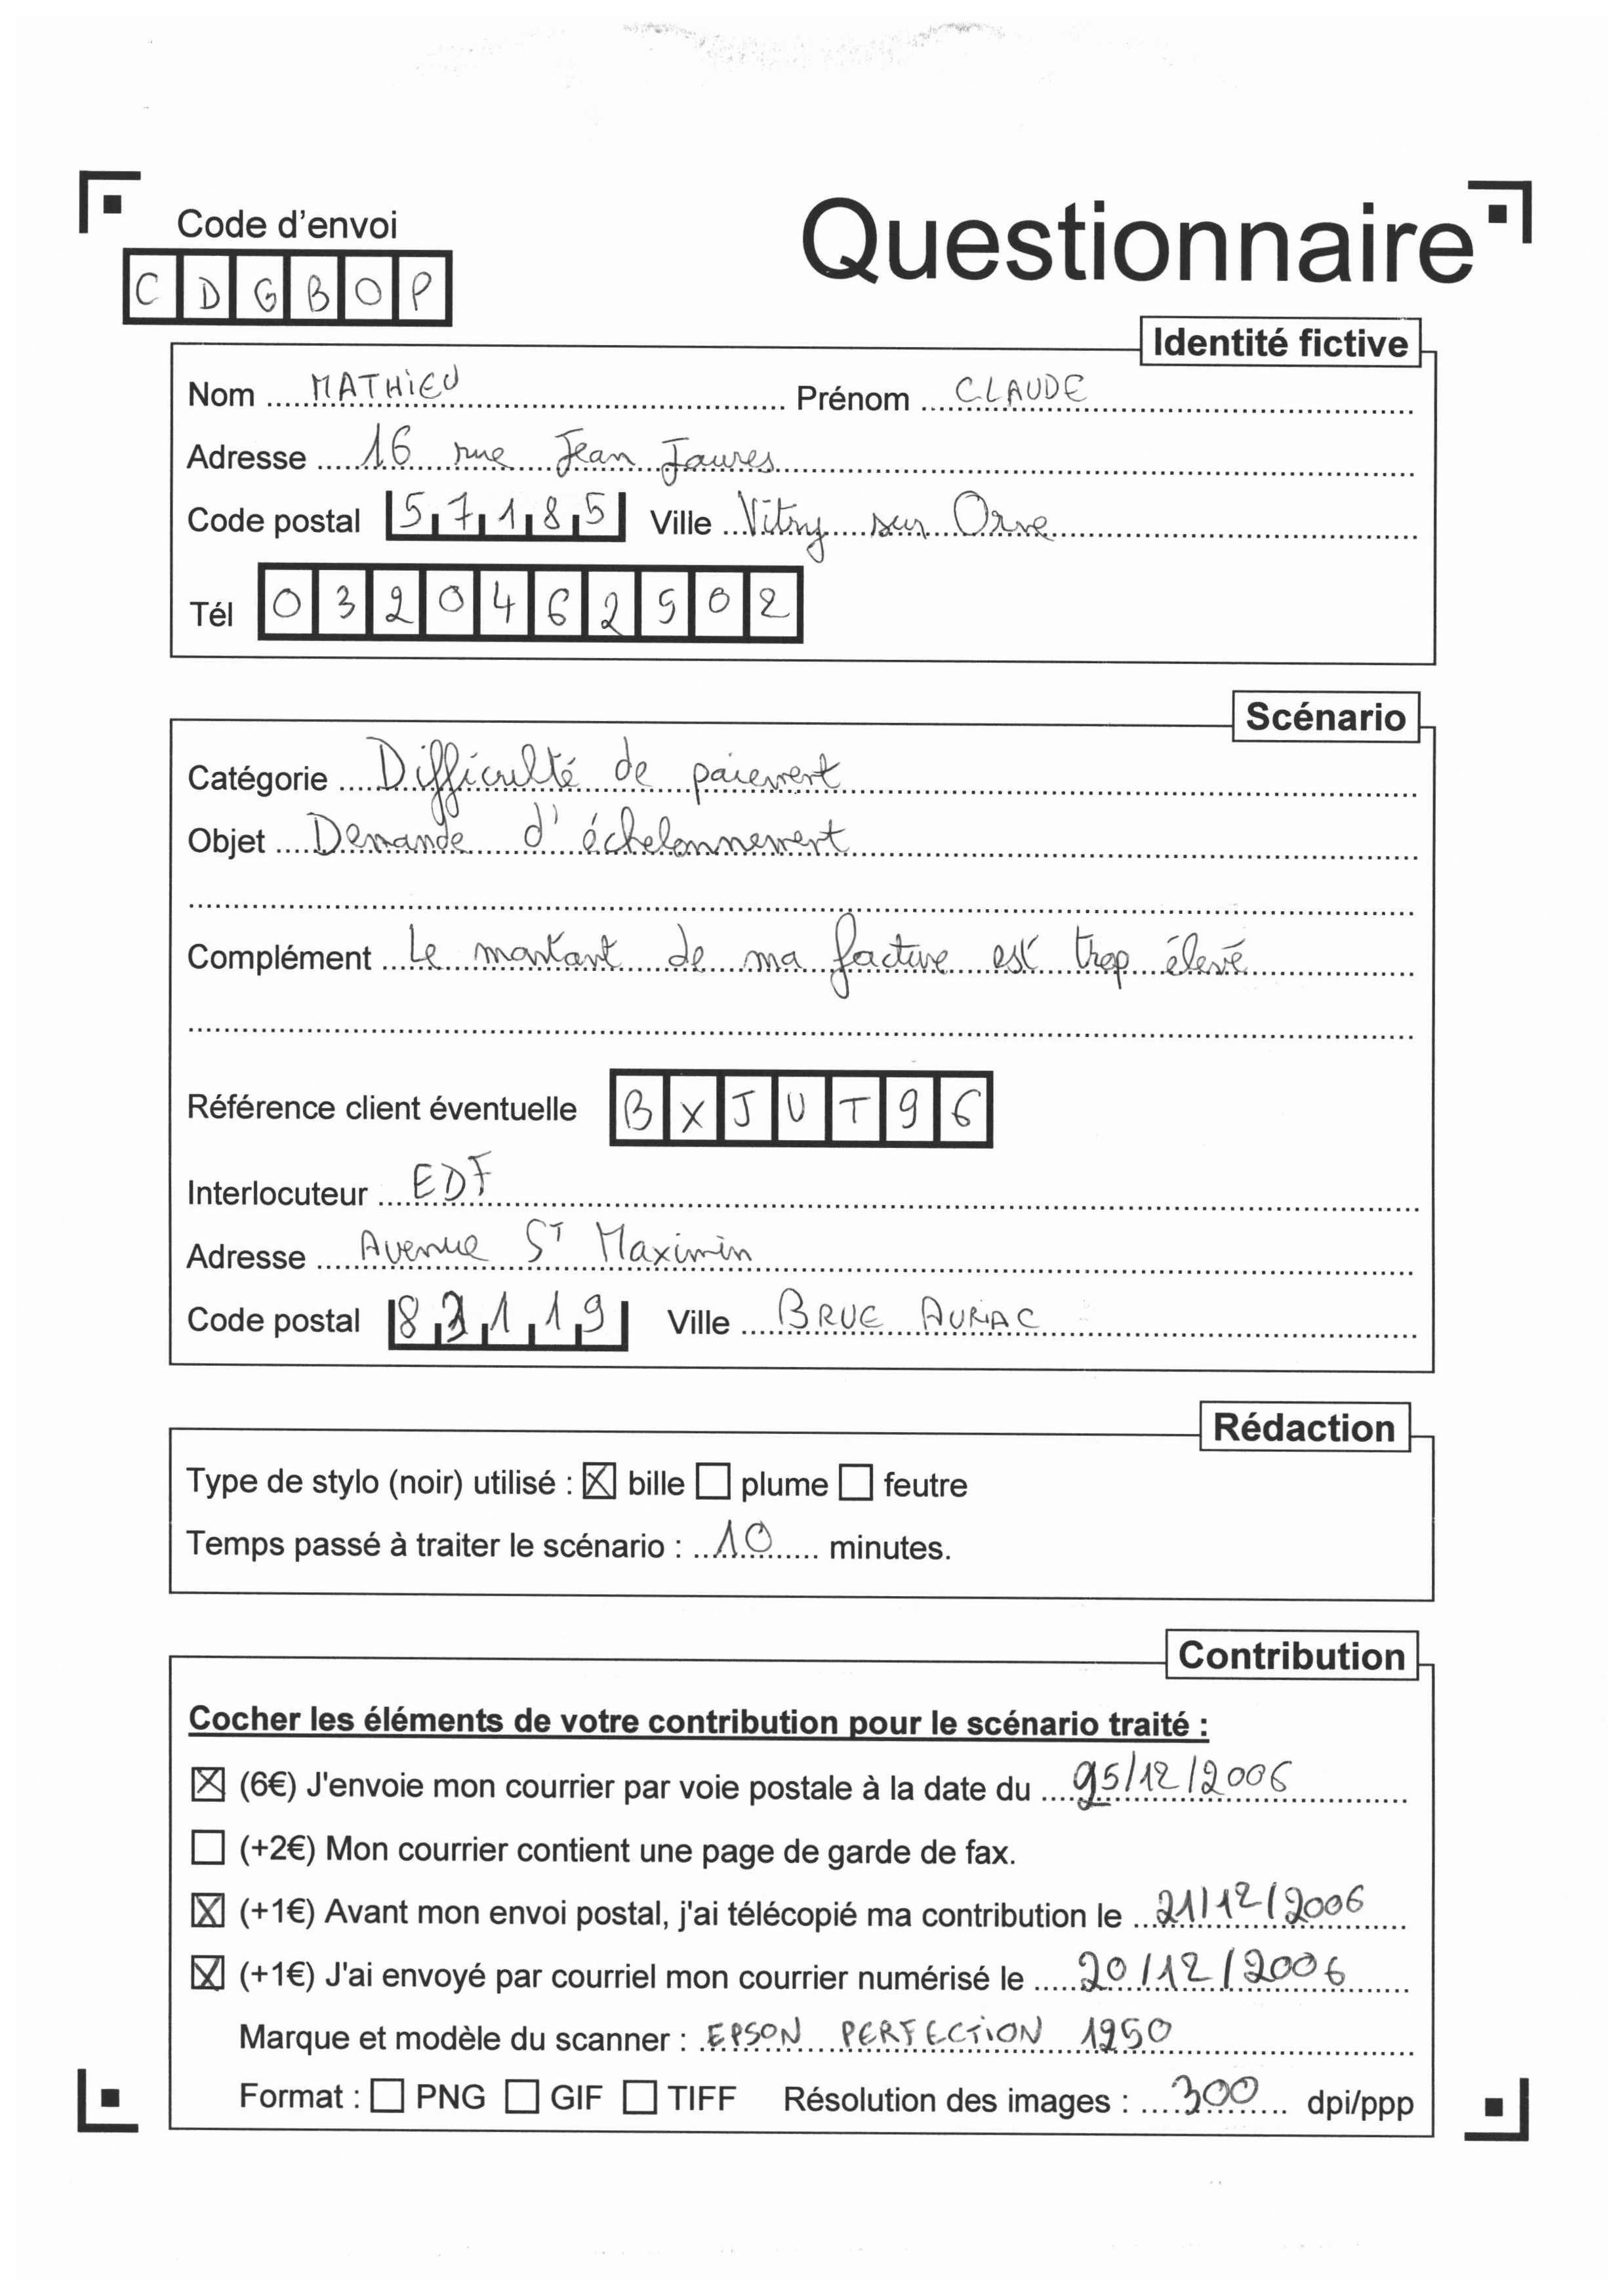 Code d'envoi
CDGBOP
Questionnaire
Identité fictive
Nom MATHIEU Prénom CLAUDE
Adresse 16 rue Jean Jaures
Code postal 57185 Ville Vitry sur Orne
Tél 0320462902
Scénario
Catégorie Difficulté de paiement
Objet Demande d'échelonnement
Complément Le montant de ma facture est trop élevé
Référence client éventuelle BXJUT96
Interlocuteur EDF
Adresse Avenue ST Maximin
Code postal Ville BRUE AURIAC
Rédaction
Type de stylo (noir) utilisé : ☒ bille ☐ plume ☐ feutre
Temps passé à traiter le scénario : 10 minutes.
Contribution
Cocher les éléments de votre contribution pour le scénario traité :
☒ (6€) J'envoie mon courrier par voie postale à la date du
☐ (+2€) Mon courrier contient une page de garde de fax.
☒ (+1€) Avant mon envoi postal, j'ai télécopié ma contribution le 21/12/2006
☒ (+1€) J'ai envoyé par courriel mon courrier numérisé le 20/12/2006
Marque et modèle du scanner : EPSON PERFECTION 1250
Format : ☐ PNG ☐ GIF ☐ TIFF Résolution des images : 300 dpi/ppp